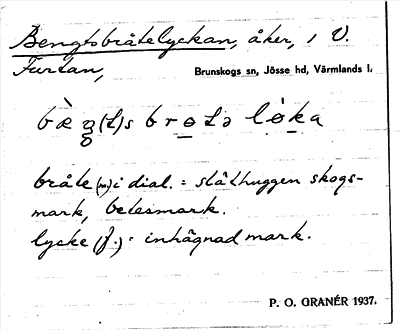 Bengtsbråtelyckan, åker, i V.
Furtan, Brunskogs sn, Jösse hd, Värmlands l.
bråte (m) i dial. = slåthuggen skogs-
mark, betesmark.
lycke (f.) = inhägnad mark.
P. O. GRANÉR 1937.